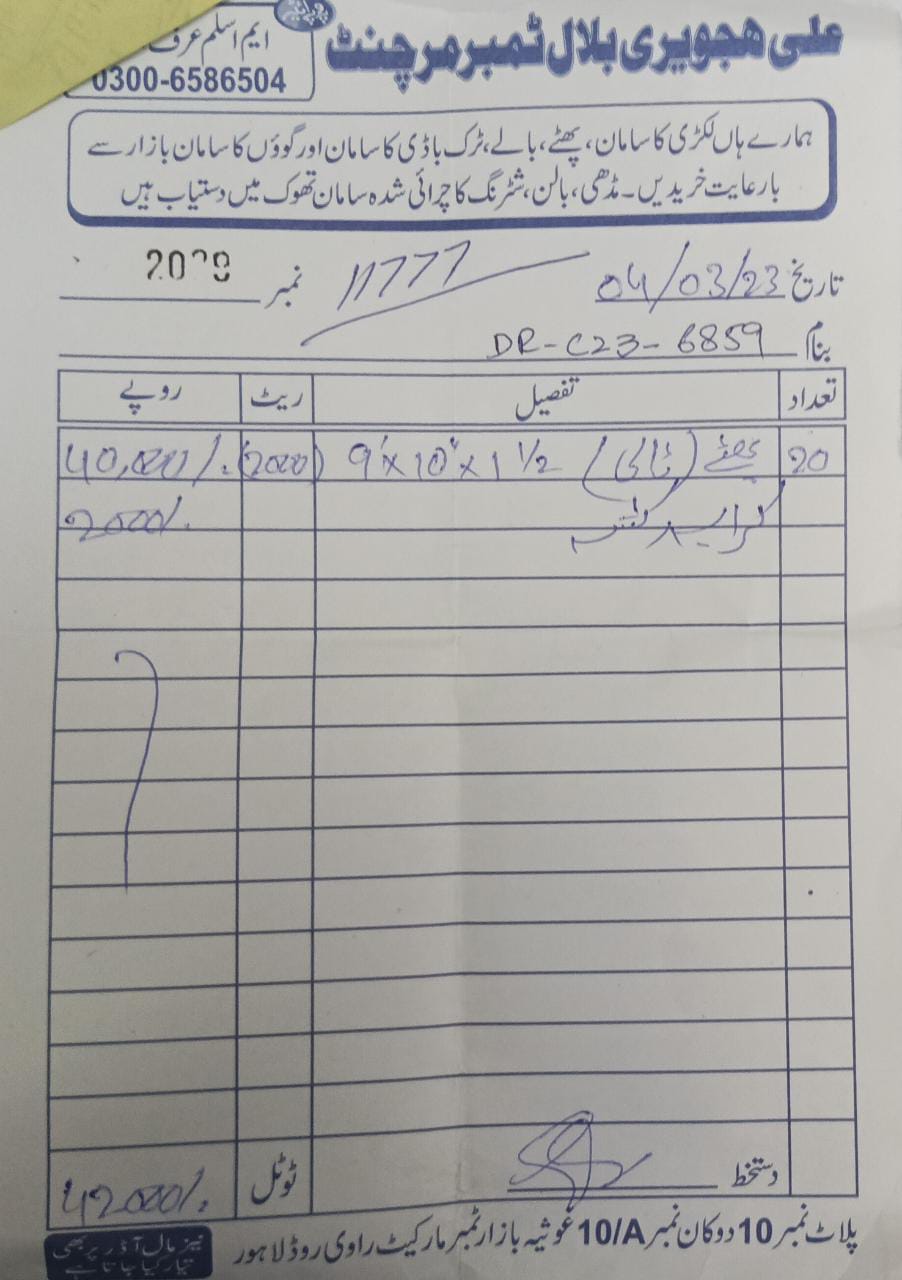 علی ہجویری بلال ٹمبر مرچنٹ
ایم اسلم عرف
0300-6586504
ہمارے ہاں لکڑی کا سامان، پھٹے، بالے، ٹرک باڈی کا سامان اور گوؤں کا سامان بازار سے
بارعایت خریدیں۔ مڈھی، بالن، شٹرنگ کا چرائی شدہ سامان تھوک میں دستیاب ہیں
تاریخ 04/03/23 11777 نمبر
بنام DR-C23-6859
تعداد تفصیل ریٹ روپے
20 پھٹے (ٹالی) 9'x10"x1 1/2 (2000) 40,000/.
کرایہ 2000/.
دستخط ٹوٹل 42000/.
پلاٹ نمبر 10 دوکان نمبر 10/A غوثیہ بازار ٹمبر مارکیٹ راوی روڈ لاہور
نیز مال آڈر پر بھی
تیار کیا جاتا ہے